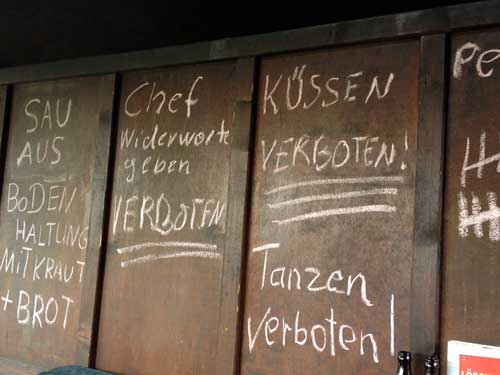 SAU
AUS
BODEN
HALTUNG
MIT KRAUT
+ BROT
Chef
Widerworte
geben
VERBOTEN
KÜSSEN
VERBOTEN!
Tanzen
Verboten!